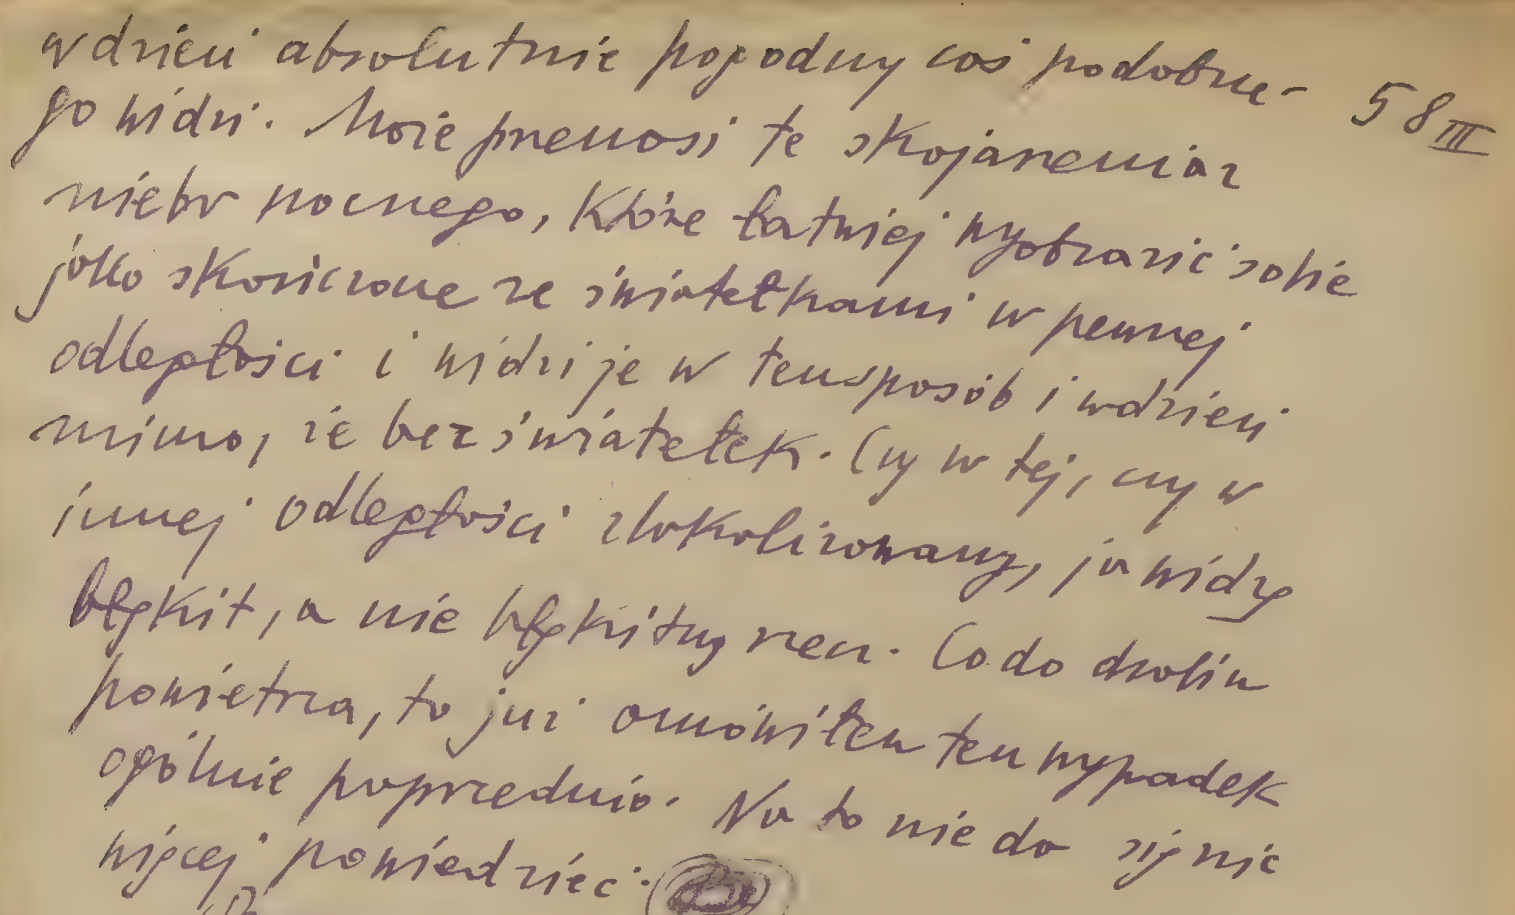 w dzień absolutnie pogodny coś podobne-
58 III
go widzi. Może przenosi te skojarzenia z
nieba nocnego, które łatwiej wyobrazić sobie
jako skończone ze światełkami w pewnej
odległości i widzi je w ten sposób i w dzień
mimo, że bez światełek. Czy w tej, czy w
innej odległości zlokalizowany, ja widzę
błękit, a nie błękitną rzecz. Co do drobin
powietrza, to już omówiłem ten wypadek
ogólnie poprzednio. Na to nie da się nic
więcej powiedzieć.